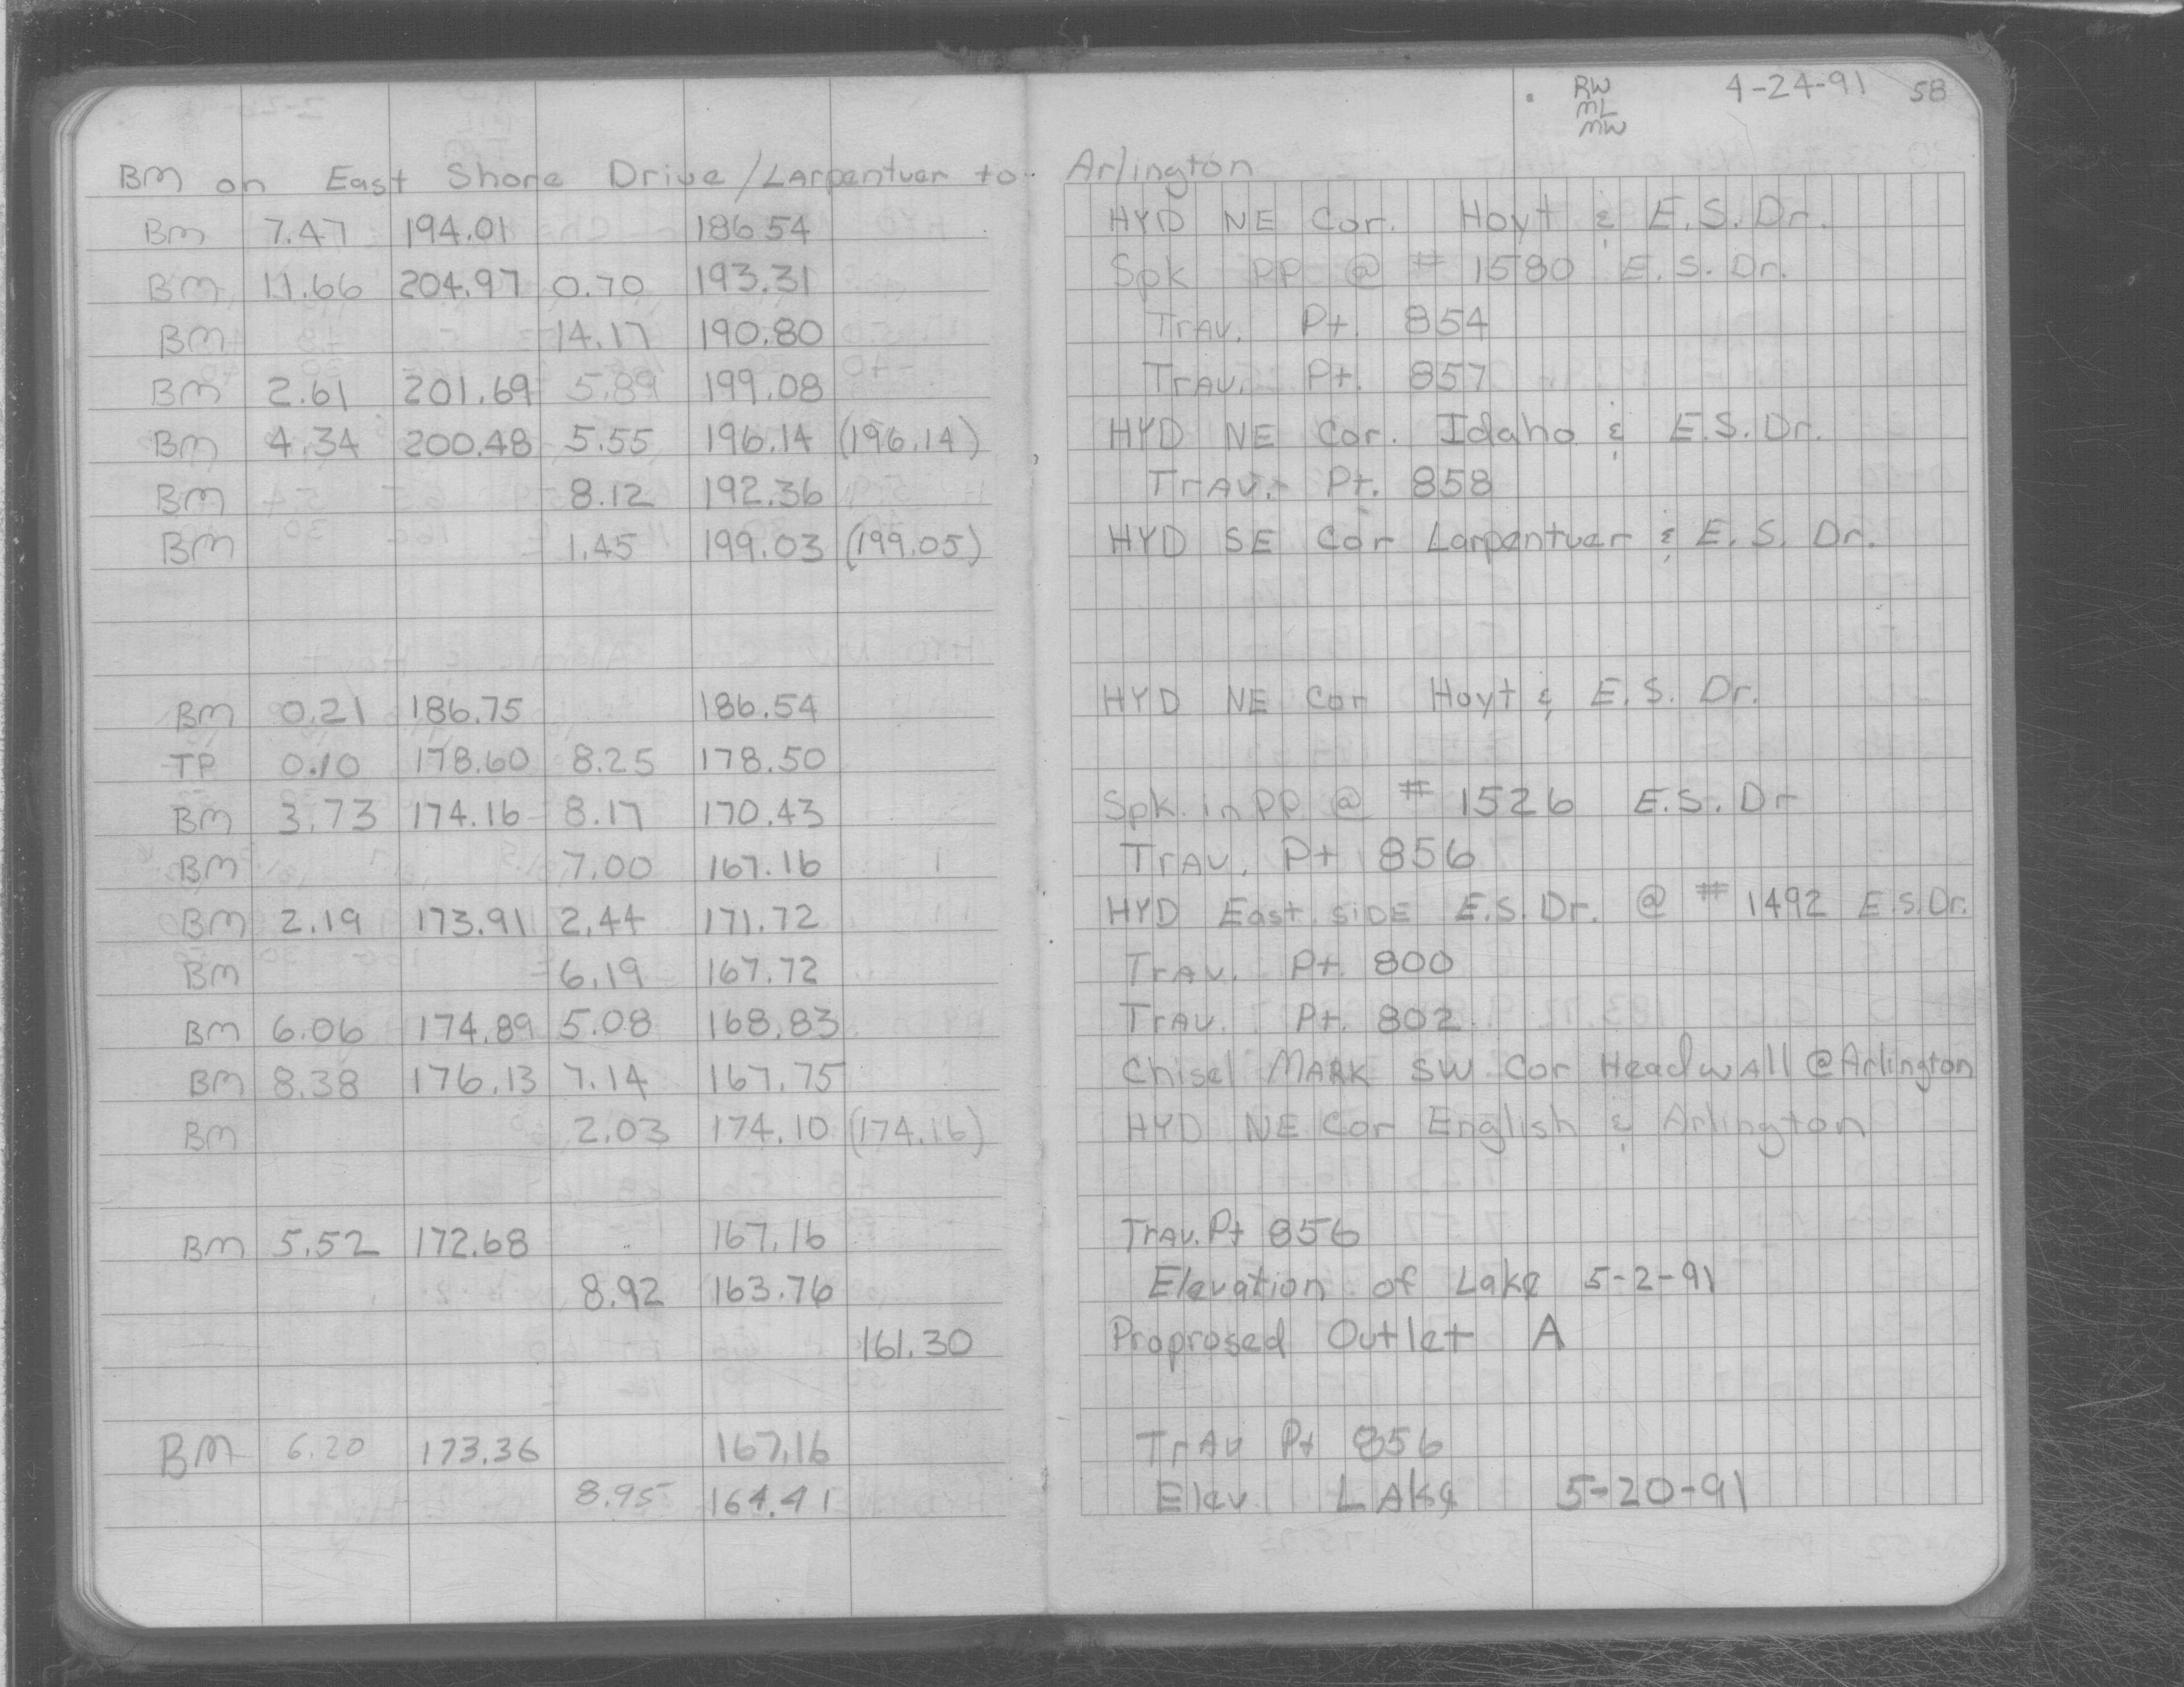 RW 4-24-91 58
ML
MW
BM on East Shore Drive/Larpentuer to Arlington
BM 7.47 194.01 186.54 HYD NE Cor. Hoyt & E.S. Dr.
BM 11.66 204.97 0.70 193.31 Spk PP @ # 1580 E.S. Dr.
BM 14.17 190.80 Trav. Pt. 854
BM 2.61 201.69 5.89 199.08 Trav. Pt. 857
BM 4.34 200.48 5.55 196.14 (196.14) HYD NE Cor. Idaho & E.S. Dr.
BM 8.12 192.36 Trav. Pt. 858
BM 1.45 199.03 (199.05) HYD SE Cor Larpentuer & E.S. Dr.
BM 0.21 186.75 186.54 HYD NE Cor Hoyt & E.S. Dr.
TP 0.10 178.60 8.25 178.50
BM 3.73 174.16 8.17 170.43 Spk. in PP @ # 1526 E.S. Dr
BM 7.00 167.16 Trav. Pt 856
BM 2.19 173.91 2.44 171.72 HYD East side E.S. Dr. @ # 1492 E.S.Dr.
BM 6.19 167.72 Trav. Pt. 800
BM 6.06 174.89 5.08 168.83 Trav. Pt. 802
BM 8.38 176.13 7.14 167.75 Chisel Mark SW Cor Headwall @ Arlington
BM 2.03 174.10 (174.16) HYD NE Cor English & Arlington
BM 5.52 172.68 167.16 Trav. Pt 856
8.92 163.76 Elevation of Lake 5-2-91
161.30 Proprosed Outlet A
BM 6.20 173.36 167.16 Trav Pt 856
8.95 164.41 Elev Lake 5-20-91